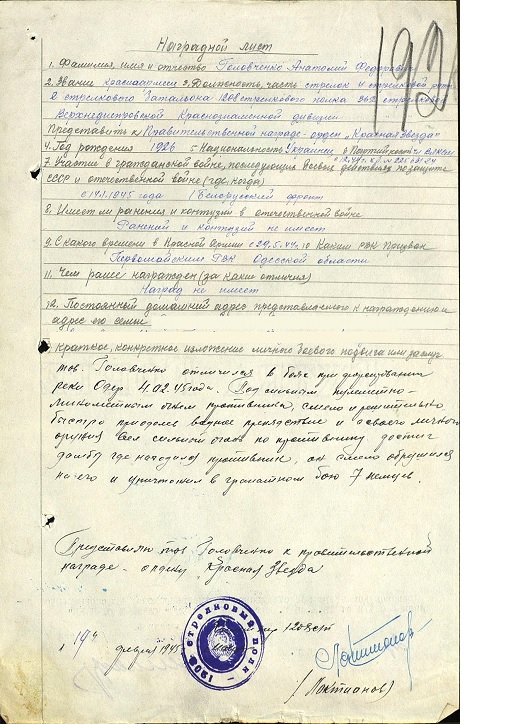 192
Наградной лист
1. Фамилия, имя и отчество Головченко Анатолий Федорович
2. Звание красноармеец 3. Должность, часть стрелок 4 стрелковой роты
2 стрелкового батальона 1208 стрелкового полка 362 стрелковой
Верхнеднепровской Краснознаменной дивизии
Представить к Правительственной награде - орден "Красная Звезда"
4. Год рождения 1926 5 Национальность Украинец 6 Партийность чл. ВЛКСМ
7. Участие в гражданской войне, последующих боевых действиях по защите
СССР и отечественной войне (где, когда)
с 14.1.1945 года 1 Белорусский фронт
8. Имеет ли ранения и контузии в отечественной войне
Ранений и контузий не имеет
9. С какого времени в Красной Армии с 29.5.44г. 10 Каким РВК призван
Первомайским РВК Одесской области
11. Чем ранее награжден (за какие отличия)
Наград не имеет
12. Постоянный домашний адрес представляемого к награждению и
адрес его семьи
Краткое, конкретное изложение личного боевого подвига или заслуг
тов. Головченко отличился в боях при форсировании
реки Одер 4.02.45 года. Под сильным пулеметно-
минометным огнем противника, смело и решительно
быстро преодолев водное препятствие и из своего личного
оружия вел сильный огонь по противнику, достиг
дамбу где находился противник, он смело обрушился
на его и уничтожил в гранатном бою 7 немцев.
Представляю тов Головченко к правительственной
награде - ордену Красная Звезда
1208 сп
"19" февраля 1945
1208 стрелковый полк
(Локтионов)